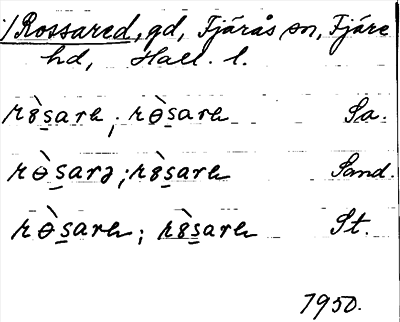 1/Rossared, gd, Fjärås sn, Fjäre
hd, Hall. l.
rȣ̀s̲are, rɵ̀s̲are Sa.
rɵ̀s̲arə; rȣ̀s̲are Sand.
rɵ̀s̲are; rȣ̀s̲are St.
1950.